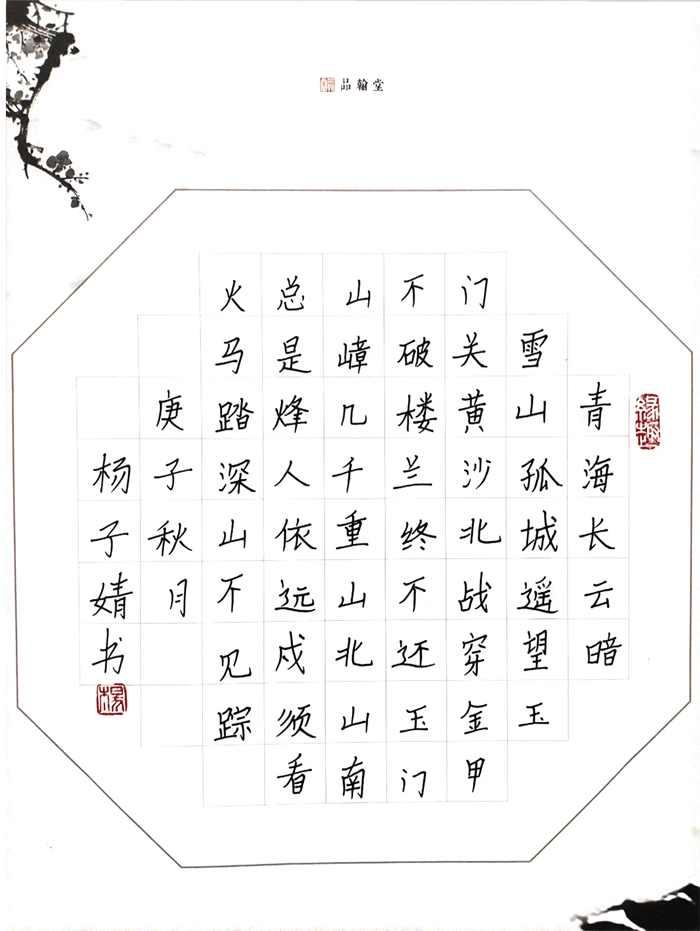 品翰堂
青海长云暗
雪山孤城遥望玉
门关黄沙北战穿金甲
不破楼兰终不还玉门
山嶂几千重山北山南
总是烽人依远戍须看
火马踏深山不见踪
庚子秋月
杨子婧书
楊